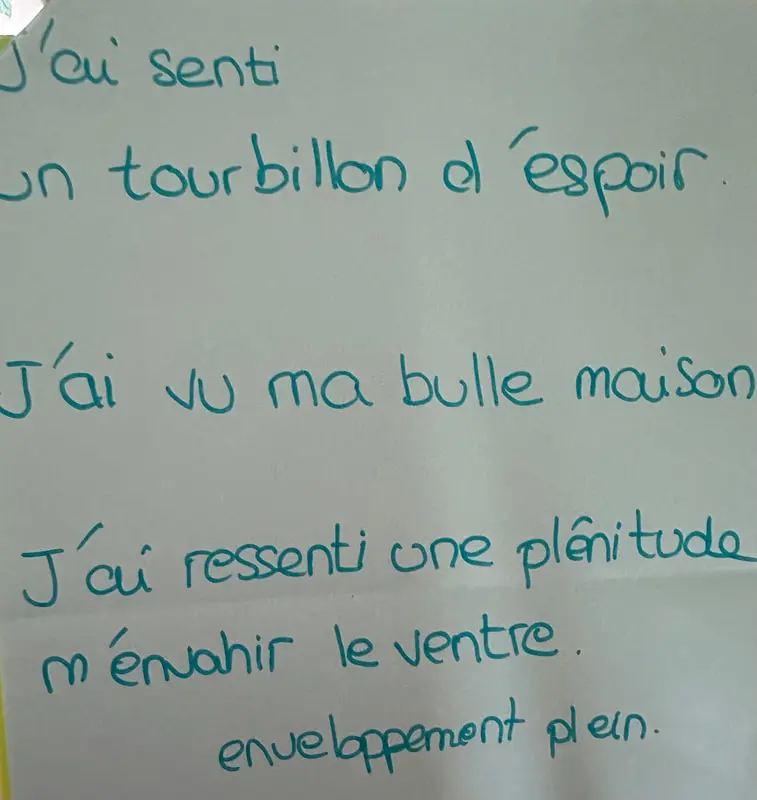 J'ai senti
un tourbillon d'espoir.
J'ai vu ma bulle maison
J'ai ressenti une plénitude
m'envahir le ventre.
enveloppement plein.